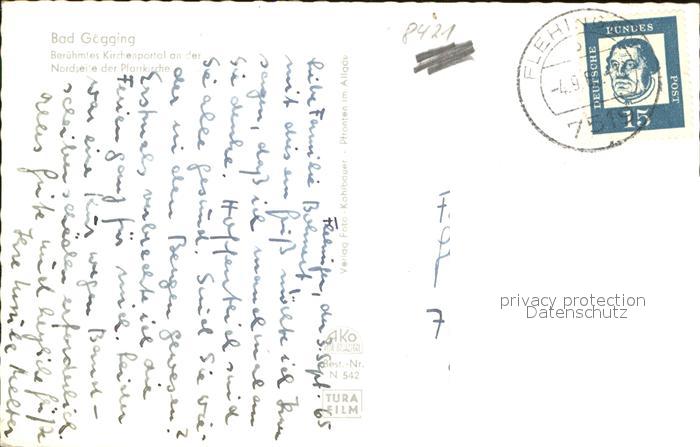 Bad Gögging
Berühmtes Kirchenportal an der
Nordseite der Pfarrkirche
8421
FLEHINGEN
-4.9.
7519
DEUTSCHE BUNDESPOST
15
Flehingen, den 3. Sept. 65
Liebe Familie
mit diesem Gruß möchte ich Ihnen
sagen, daß ich manchmal an
Sie denke. Hoffentlich sind
Sie alle gesund. Sind Sie wie-
der in den Bergen gewesen?
Erstmals verbrachte ich die
Ferien ganz für mich. Leider
war eine Kur wegen Band-
scheibenschäden erforderlich.
Alles Gute und herzliche Grüße
Ihre
Verlag Foto Kohlbauer - Pfronten im Allgäu
AKO
Best.-Nr.
N 542
TURA
FILM
7
privacy protection
Datenschutz